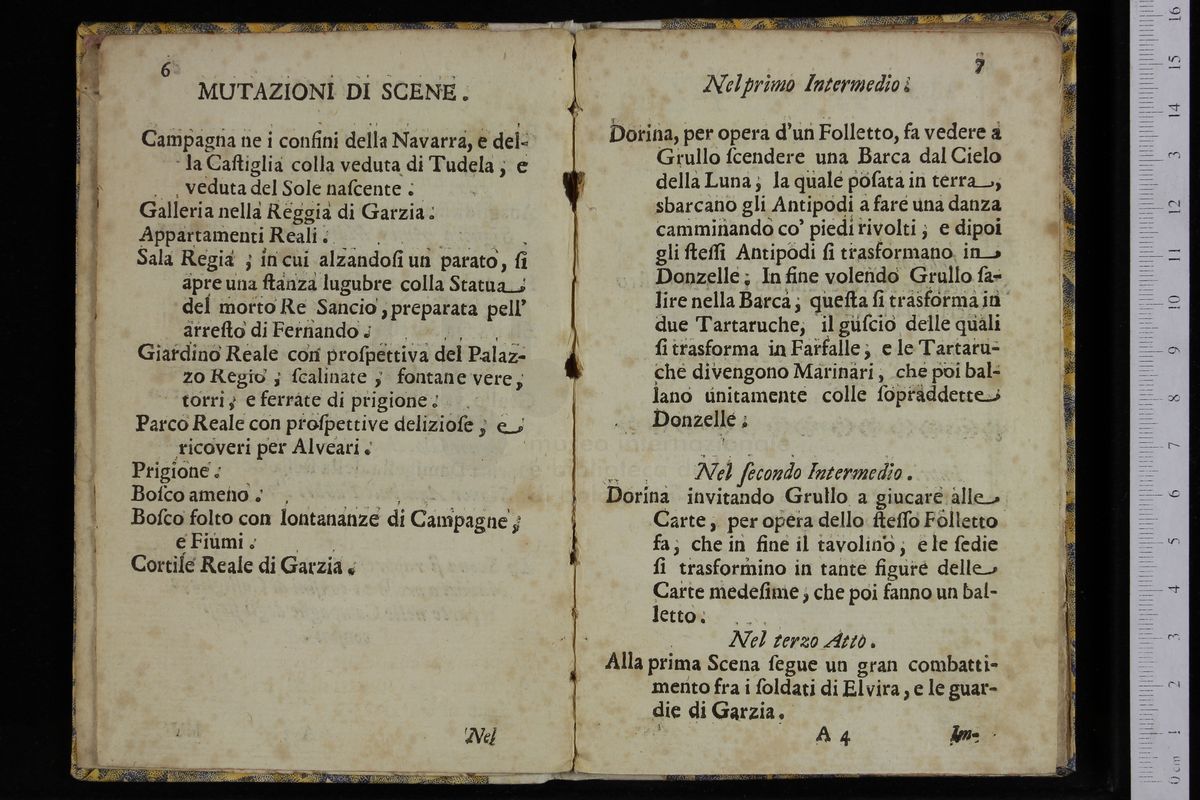 6
MUTAZIONI DI SCENE.
Campagna ne i confini della Navarra, e del-
la Caſtiglia colla veduta di Tudela, e
veduta del Sole naſcente.
Galleria nella Reggia di Garzia.
Appartamenti Reali.
Sala Regia, in cui alzandoſi un parato, ſi
apre una ſtanza lugubre colla Statua
del morto Re Sancio, preparata pell'
arreſto di Fernando.
Giardino Reale con proſpettiva del Palaz-
zo Regio, ſcalinate, fontane vere,
torri, e ferrate di prigione.
Parco Reale con proſpettive delizioſe, e
ricoveri per Alveari.
Prigione.
Boſco ameno.
Boſco folto con lontananze di Campagne,
e Fiumi.
Cortile Reale di Garzia.
Nel
7
Nel primo Intermedio.
Dorina, per opera d'un Folletto, fa vedere a
Grullo ſcendere una Barca dal Cielo
della Luna, la quale poſata in terra,
sbarcano gli Antipodi a fare una danza
camminando co' piedi rivolti, e dipoi
gli ſteſſi Antipodi ſi trasformano in
Donzelle. In fine volendo Grullo ſa-
lire nella Barca, queſta ſi trasforma in
due Tartaruche, il guſcio delle quali
ſi trasforma in Farfalle, e le Tartaru-
che divengono Marinari, che poi bal-
lano unitamente colle ſopraddette
Donzelle.
Nel ſecondo Intermedio.
Dorina invitando Grullo a giucare alle
Carte, per opera dello ſteſſo Folletto
fa, che in fine il tavolino, e le ſedie
ſi trasformino in tante figure delle
Carte medeſime, che poi fanno un bal-
letto.
Nel terzo Atto.
Alla prima Scena ſegue un gran combatti-
mento fra i ſoldati di Elvira, e le guar-
die di Garzia.
A 4
Im-